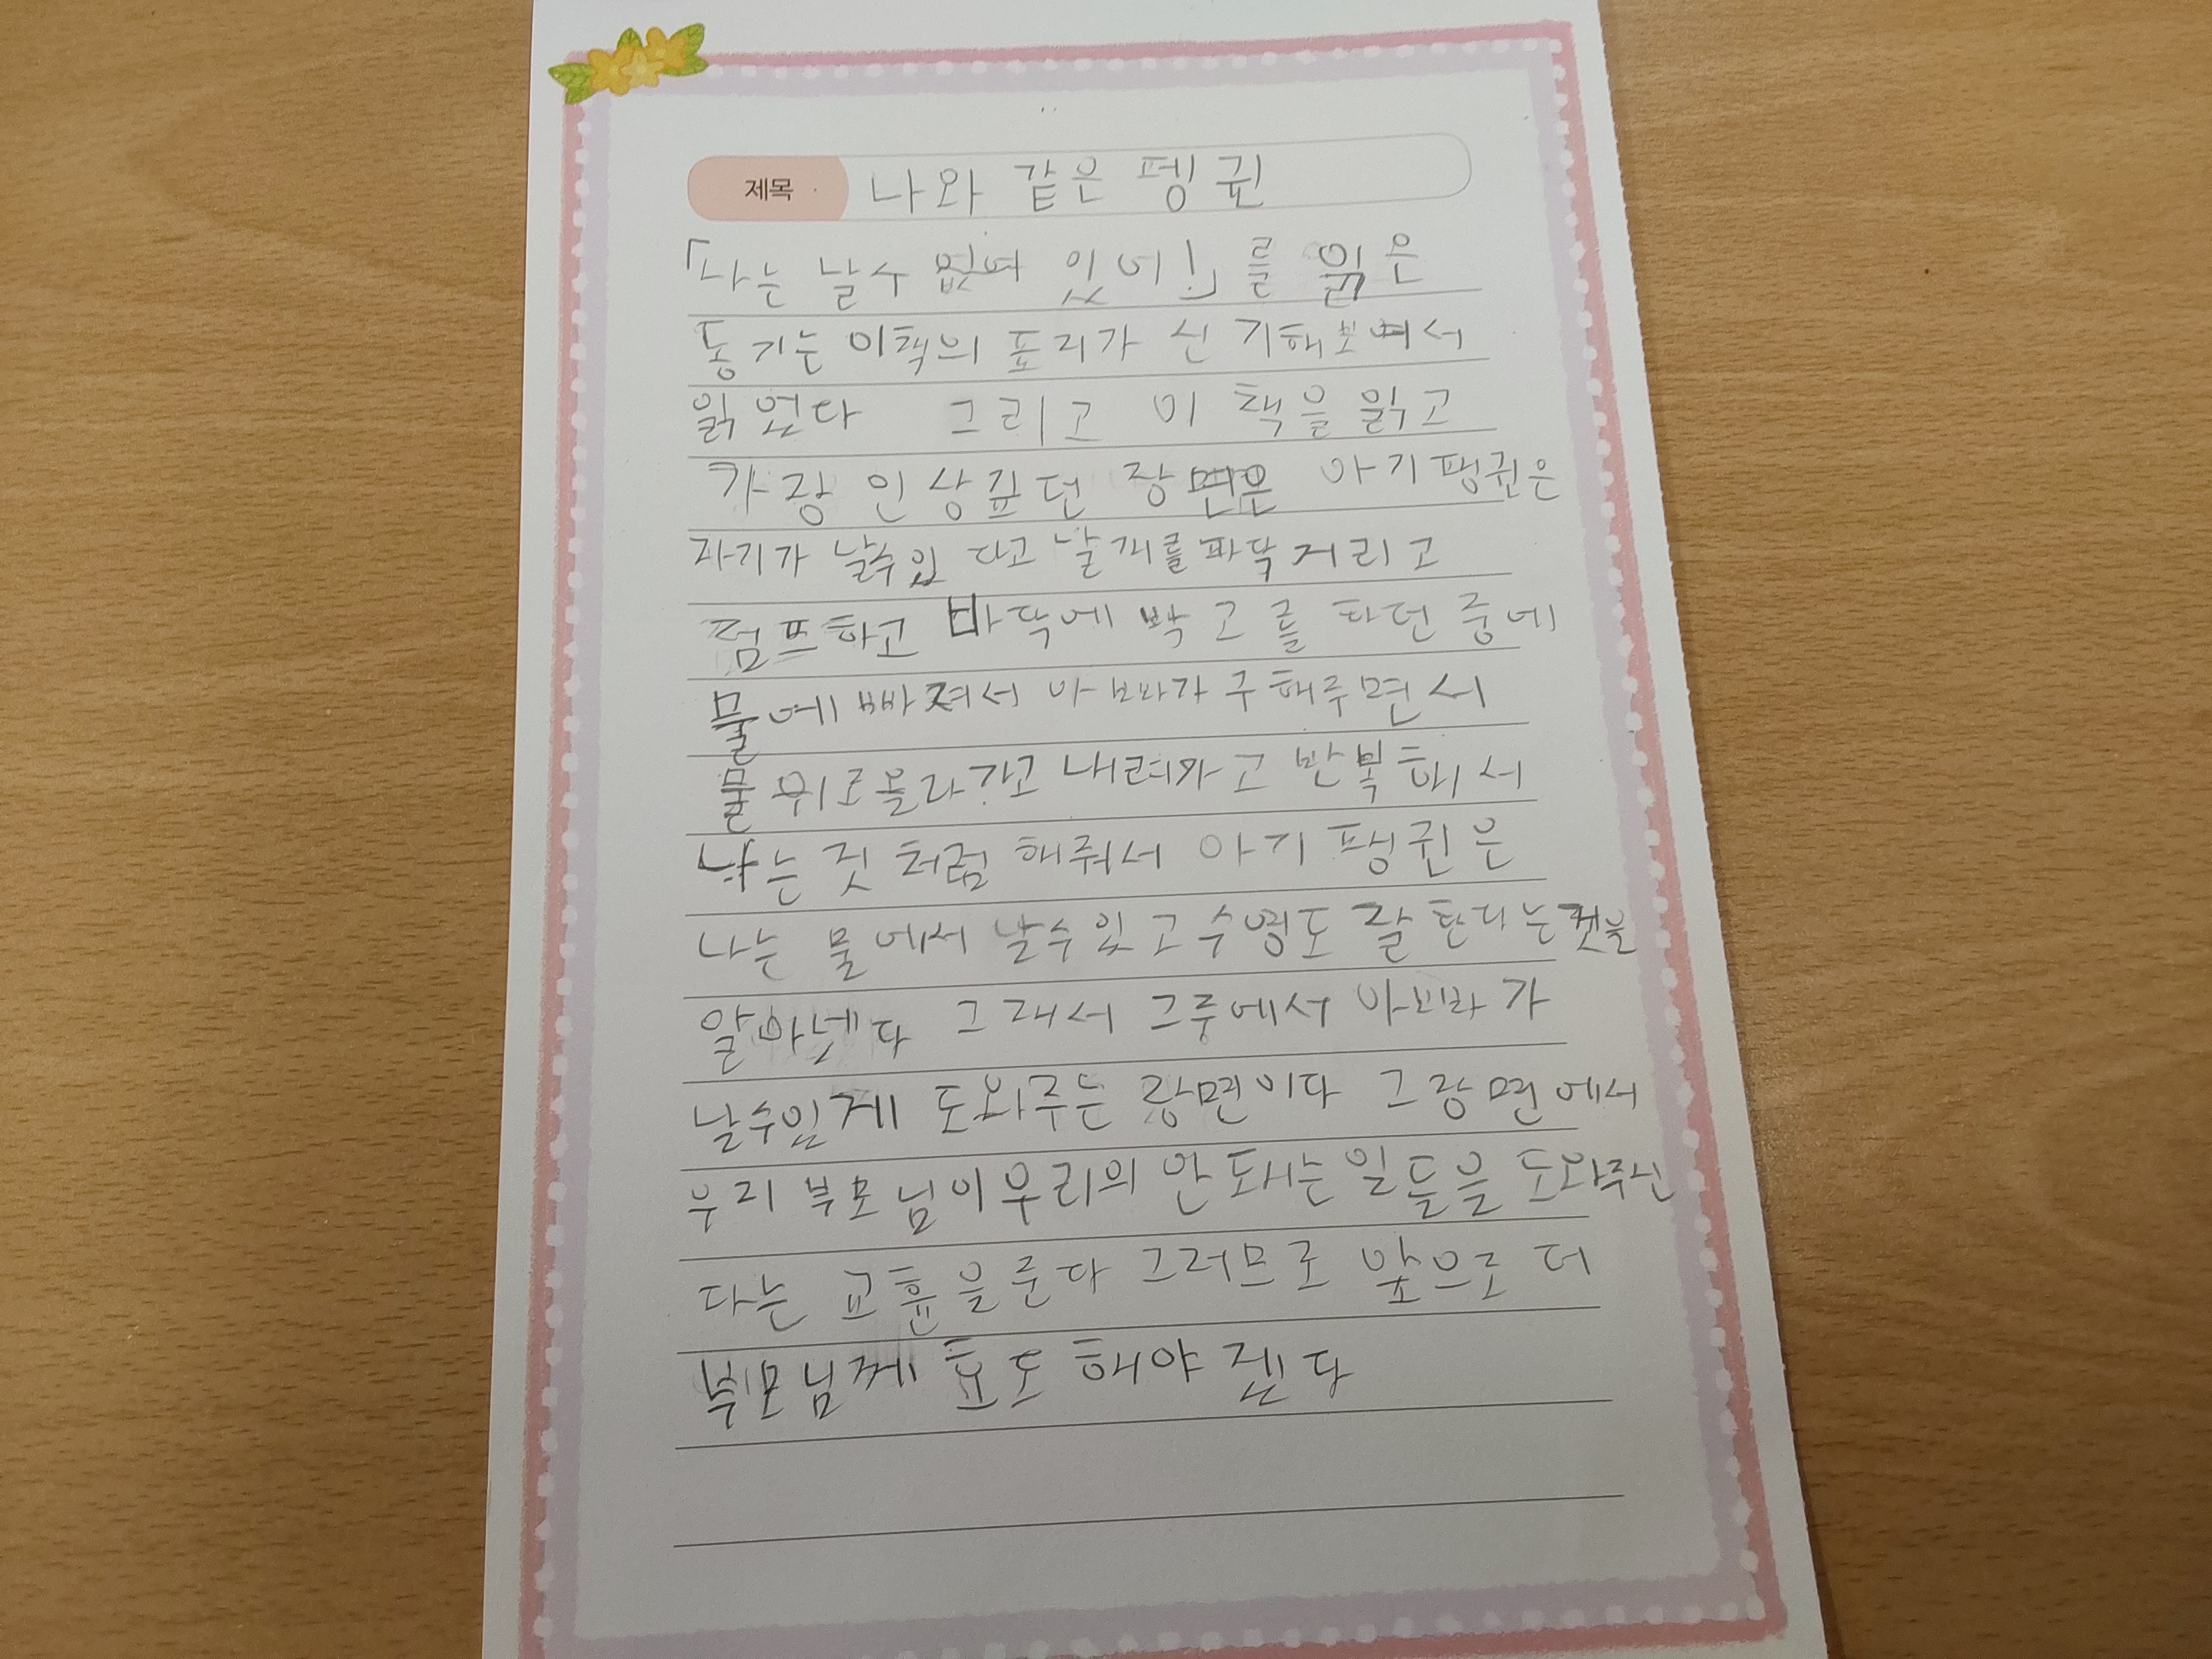 제목 나와 같은 펭귄
「나는 날수 없어 있어!」를 읽은
동기는 이책의 표지가 신기해보여서
읽었다 그리고 이 책을 읽고
가장 인상깊던 장면은 아기팽귄은
자기가 날수있 다고 날개를파닥거리고
점프하고 바닥에 박고를 하던 중에
물에빠져서 아빠가 구해주면서
물위로올라가고 내려가고 반복해서
나는 것 처럼 해줘서 아기 팽귄은
나는 물에서 날수있고 수영도 잘 한다는것을
알아넀다 그래서 그중에서 아빠가
날수있게 도와주는 장면이다 그장면에서
우리 부모님이우리의 안 되는 일들을 도와주신
다는 교훈을준다 그러므로 앞으로 더
부모님께 효도 해야 겠다